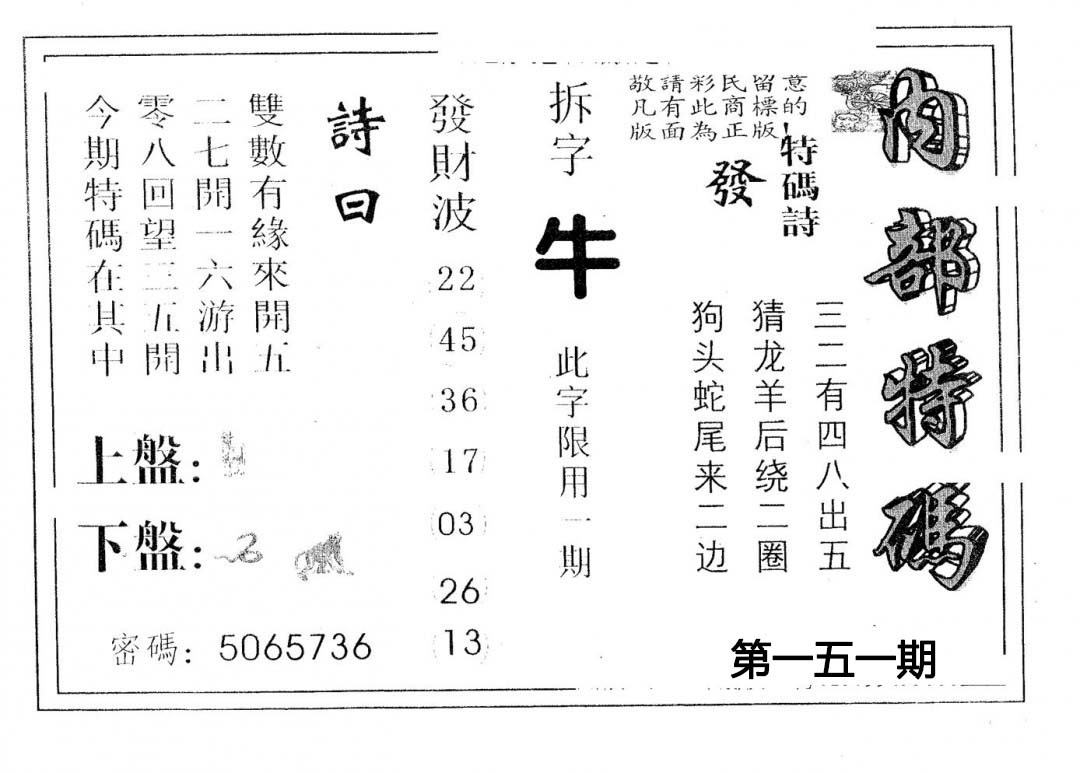 內部特碼
敬請彩民留意
凡有此商標的
版面為正版!
特碼詩
發
三二有四八出五
猜龙羊后绕二圈
狗头蛇尾来二边
第一五一期
拆字
牛
此字限用一期
發財波
22
45
36
17
03
26
13
詩曰
雙數有緣來開五
二七開一六游出
零八回望三五開
今期特碼在其中
上盤：
下盤：
密碼：5065736